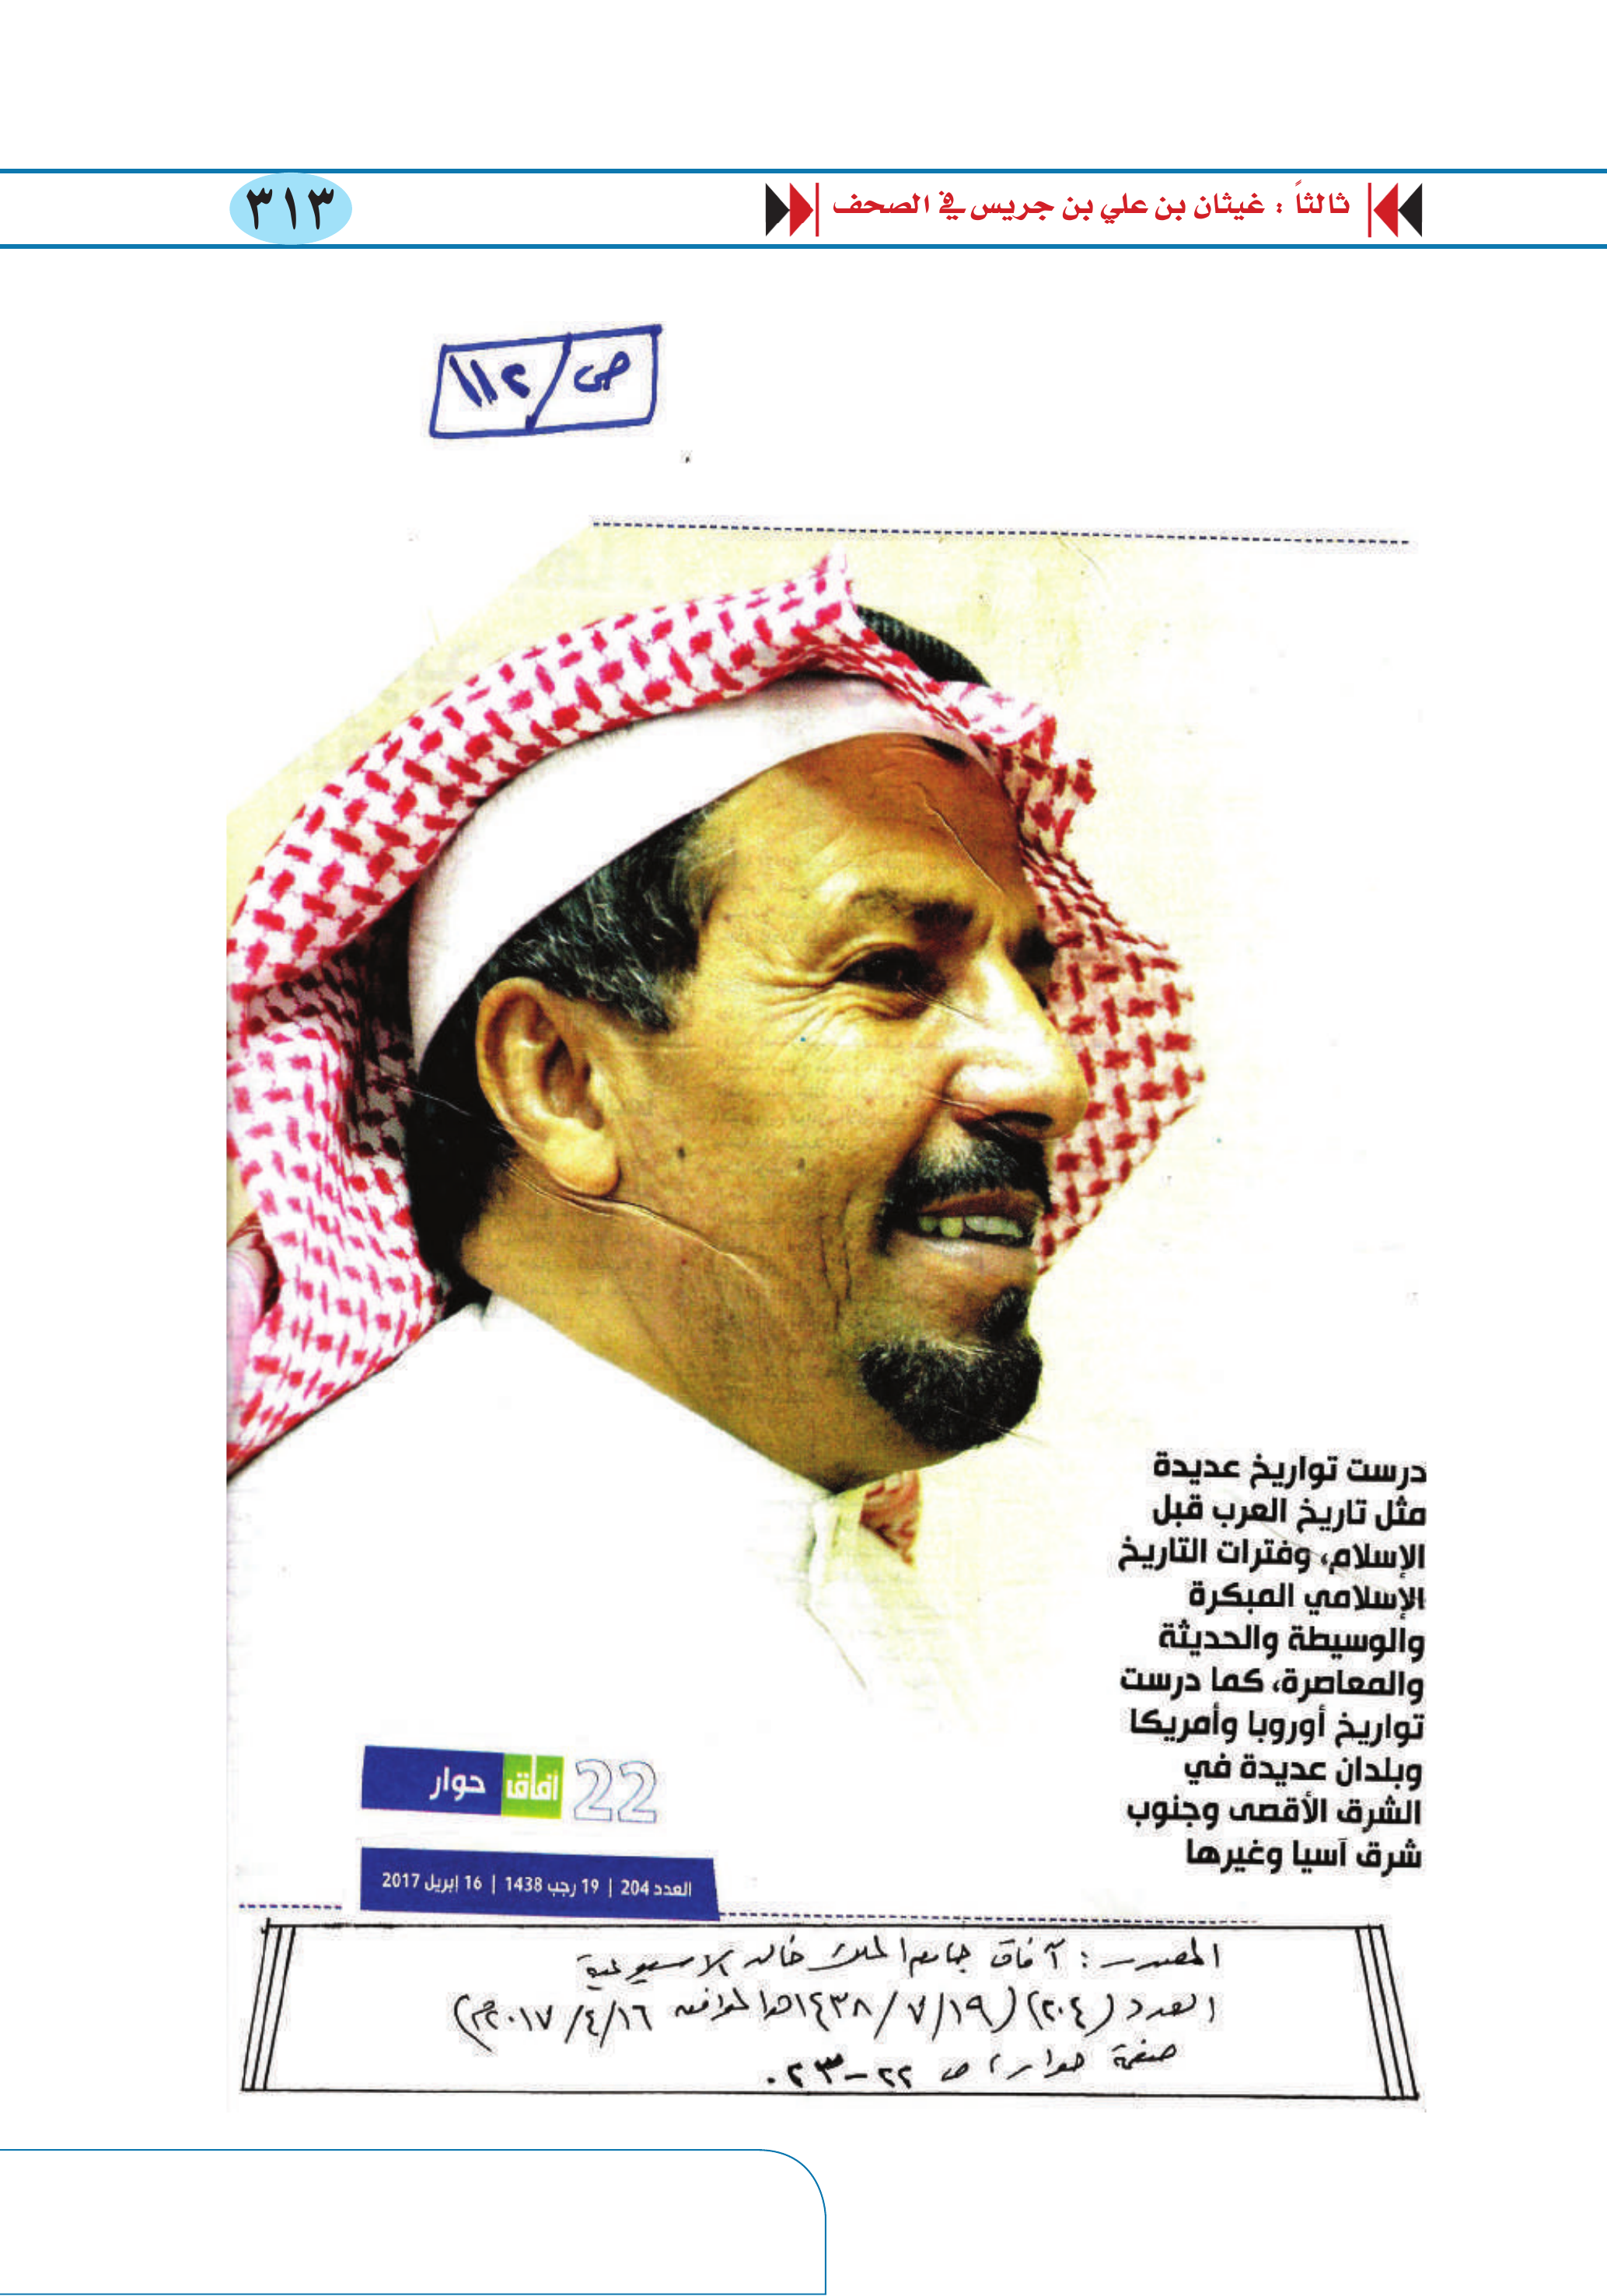 ثالثاً : غيثان بن علي بن جريس في الصحف
٣١٣
ص/١١٢
درست تواريخ عديدة
مثل تاريخ العرب قبل
الإسلام، وفترات التاريخ
الإسلامي المبكرة
والوسيطة والحديثة
والمعاصرة، كما درست
تواريخ أوروبا وأمريكا
وبلدان عديدة في
الشرق الأقصى وجنوب
شرق آسيا وغيرها
22 آفاق حوار
العدد 204 | 19 رجب 1438 | 16 إبريل 2017
المصدر : آفاق جامعة الملك خالد الاسبوعية
العدد (٢٠٤) (١٤٣٨/٧/١٩هـ الموافق ٢٠١٧/٤/١٦م)
صفحة حوار، ص ٢٢-٢٣.